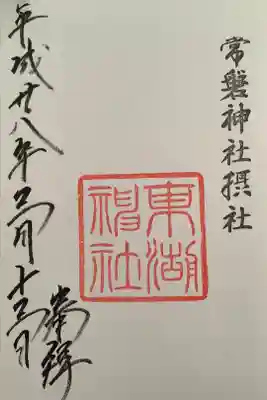 常磐神社摂社
東湖神社
平成廿八年三月十三日
奉拝